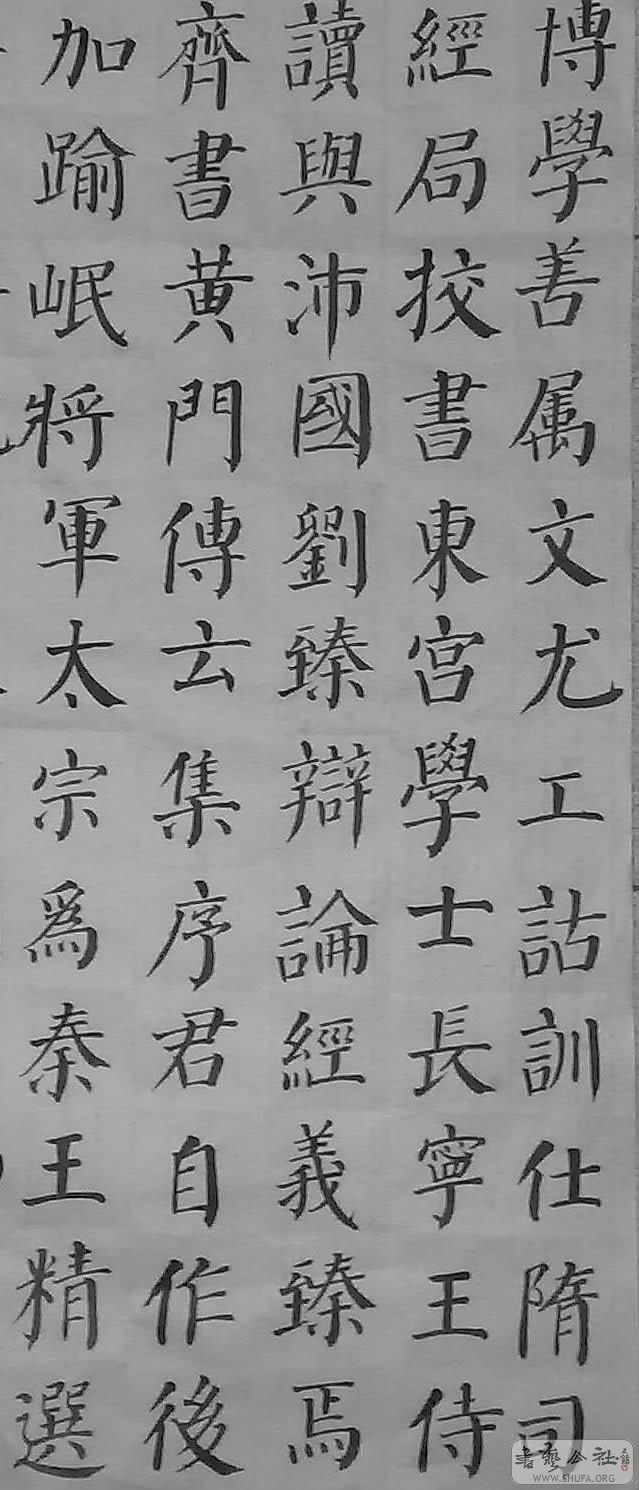 博學善属文尤工詁訓仕隋司
經局挍書東宫學士長寧王侍
讀與沛國劉臻辯論經義臻焉
齊書黄門傳云集序君自作後
加踰岷将軍太宗爲秦王精選
書藝公社
WWW.SHUFA.ORG